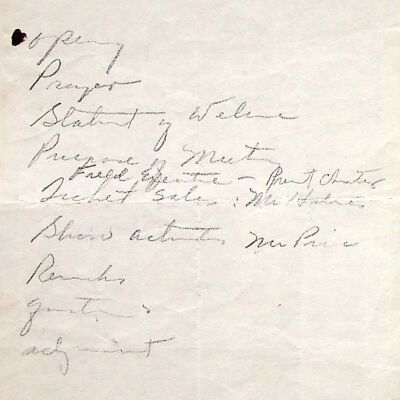 Opening
Prayer
Statement of Welcome
Purpose of Meeting
Field Executive - Present Charter
Ticket Sales : Mr Holmes
Show activities Mr Price
Remarks
questions
adjournment